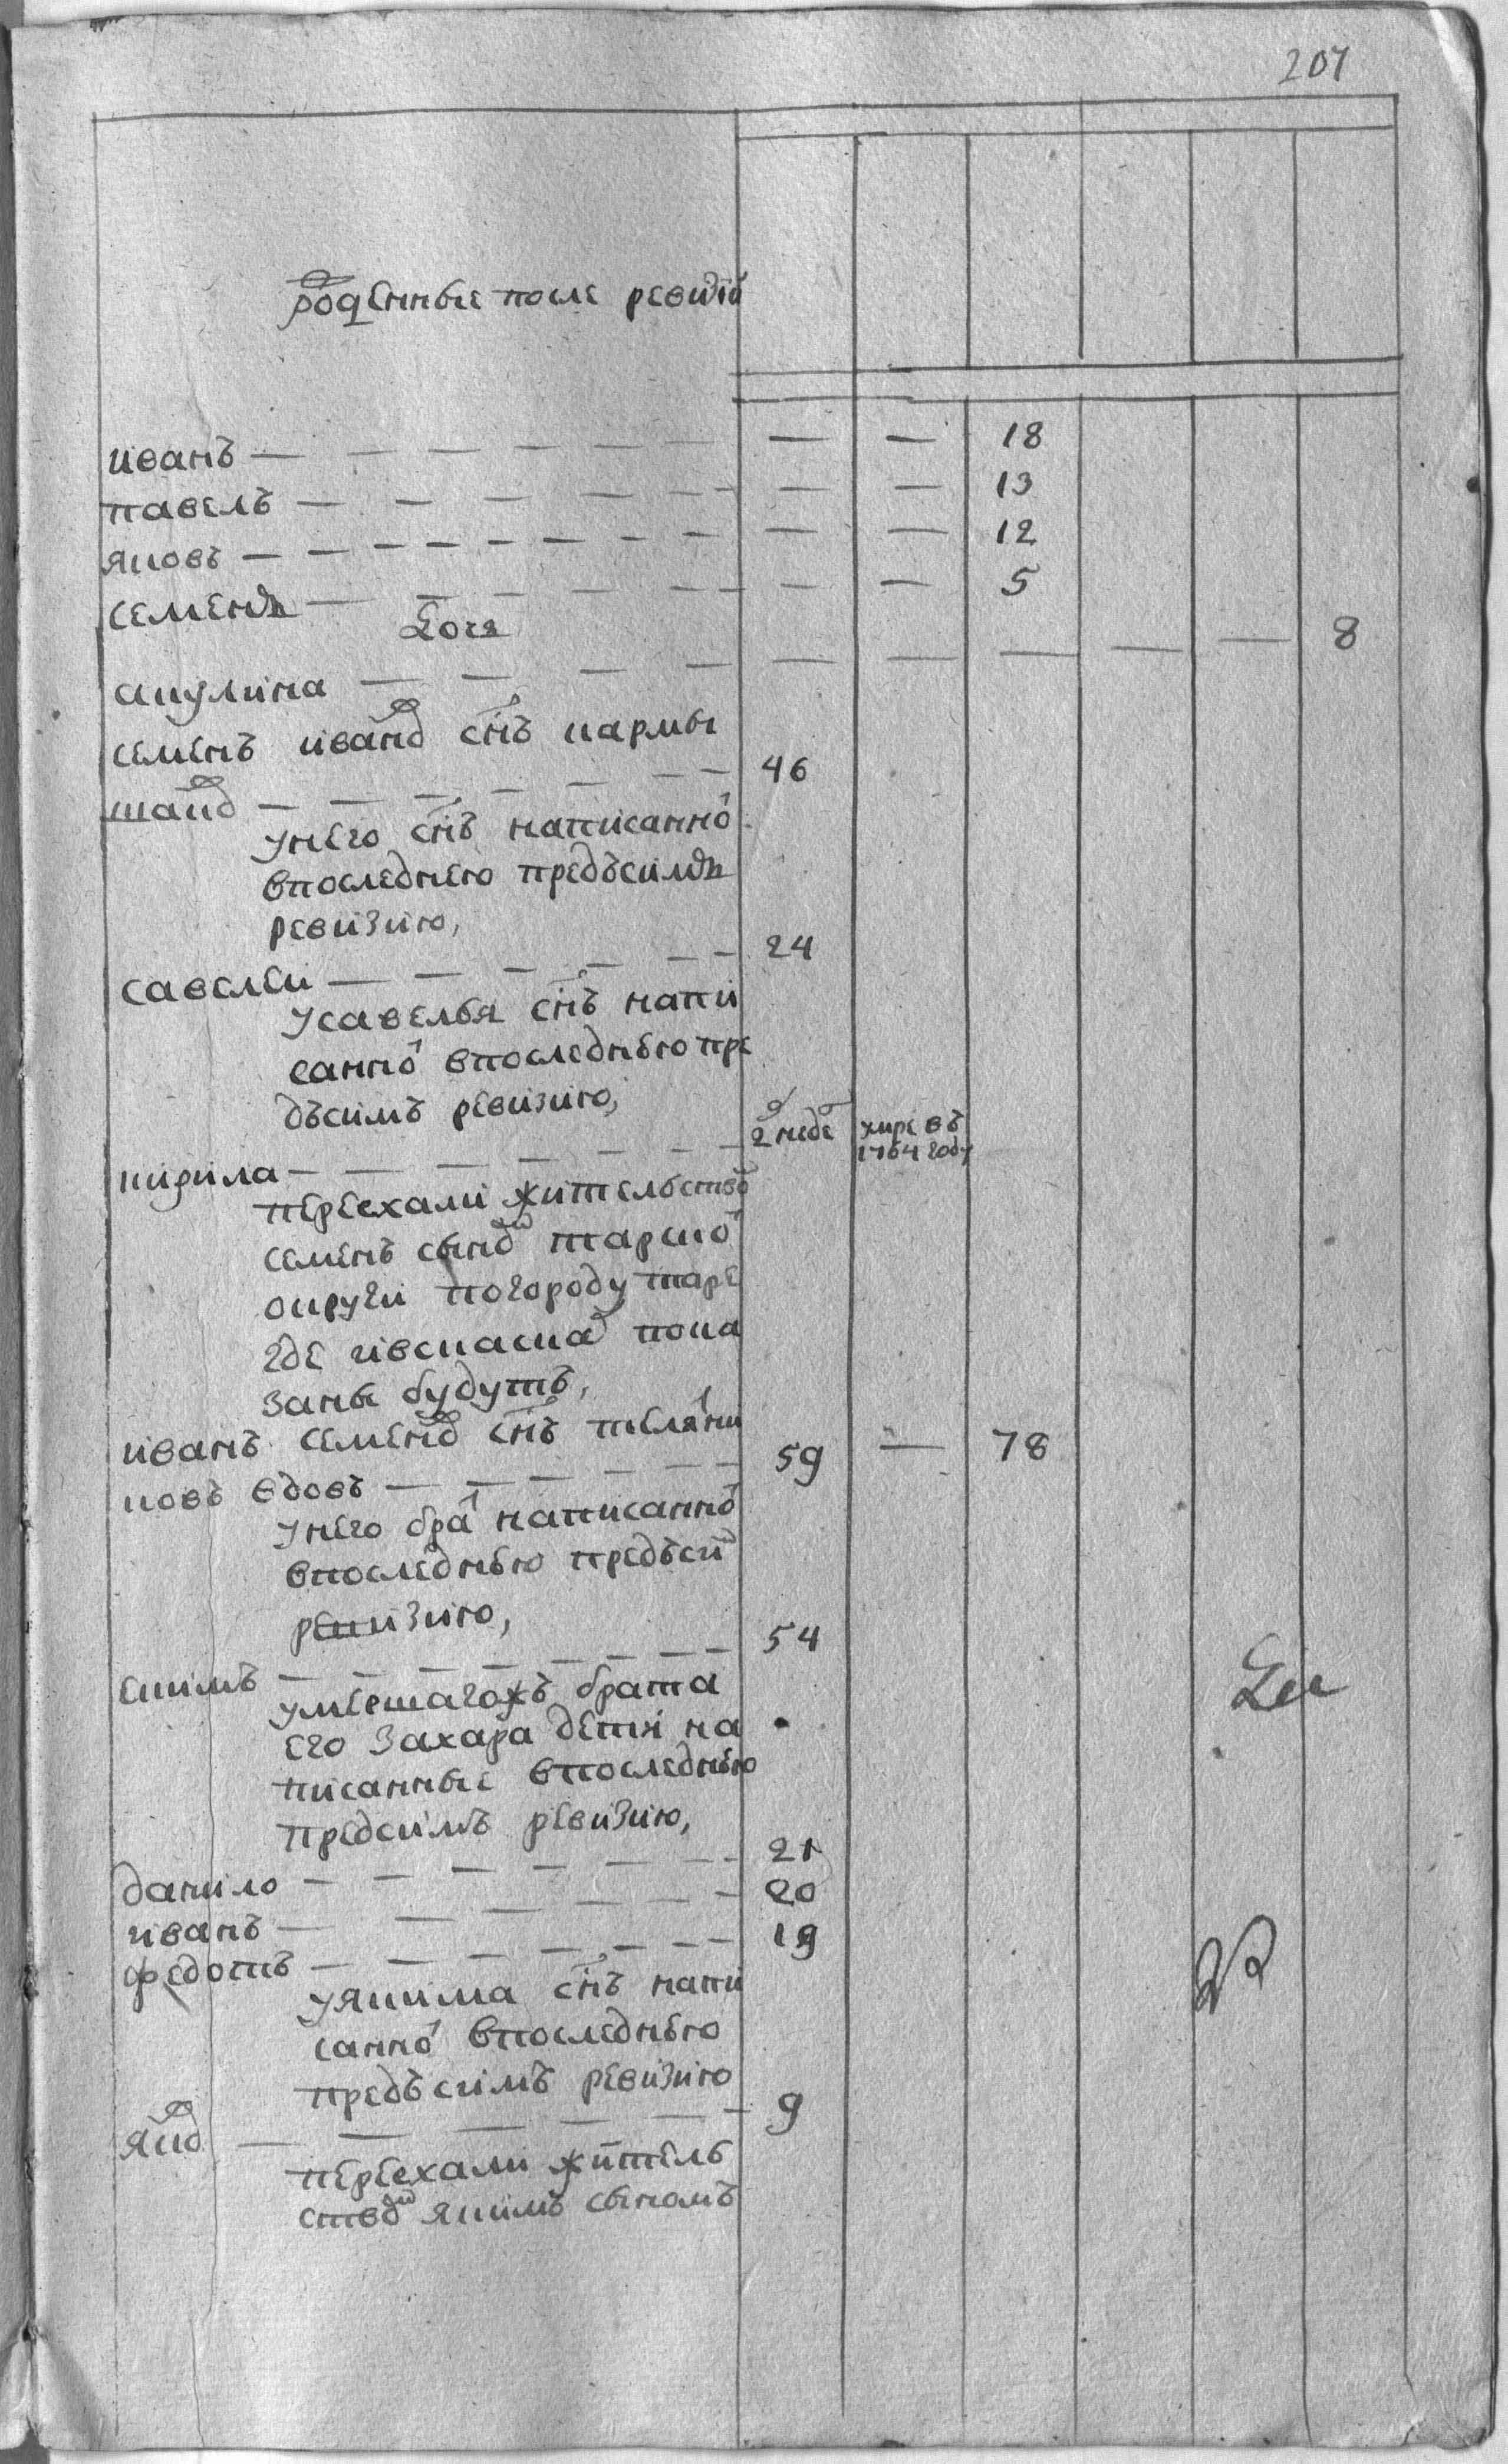 207
рожденные после ревизїи
иванъ — — — 18
павелъ — — — 13
яковъ — — — 12
семенъ — — — 5
дочя
акулина — — — — — — 8
семенъ иванов снъ кармы
шаков — 46
унего снъ написанно
впоследнею предъсимъ
ревизию,
савелеи — 24
усавелья снъ напи
санно впоследнью пре
дъсимъ ревизию,
кирила — 2 неде умре въ 1764 году
переехали жительство
семенъ сыном тарско
округи погороду таре
где ивсказка пока
заны будутъ,
иванъ семенов снъ телѧтни
ковъ вдовъ — 59 — 78
унего бра написанно
впоследнью предъсим
ревизию,
екимъ — 54
умершагожъ брата
его захара дети на
писанные впоследнью
предсимъ ревизию,
данило — 21
иванъ — 20
федотъ — 19
уякима снъ напи
санно впоследнью
предъсимъ ревизию
яков — 9
переехали житель
ством якимъ сыномъ